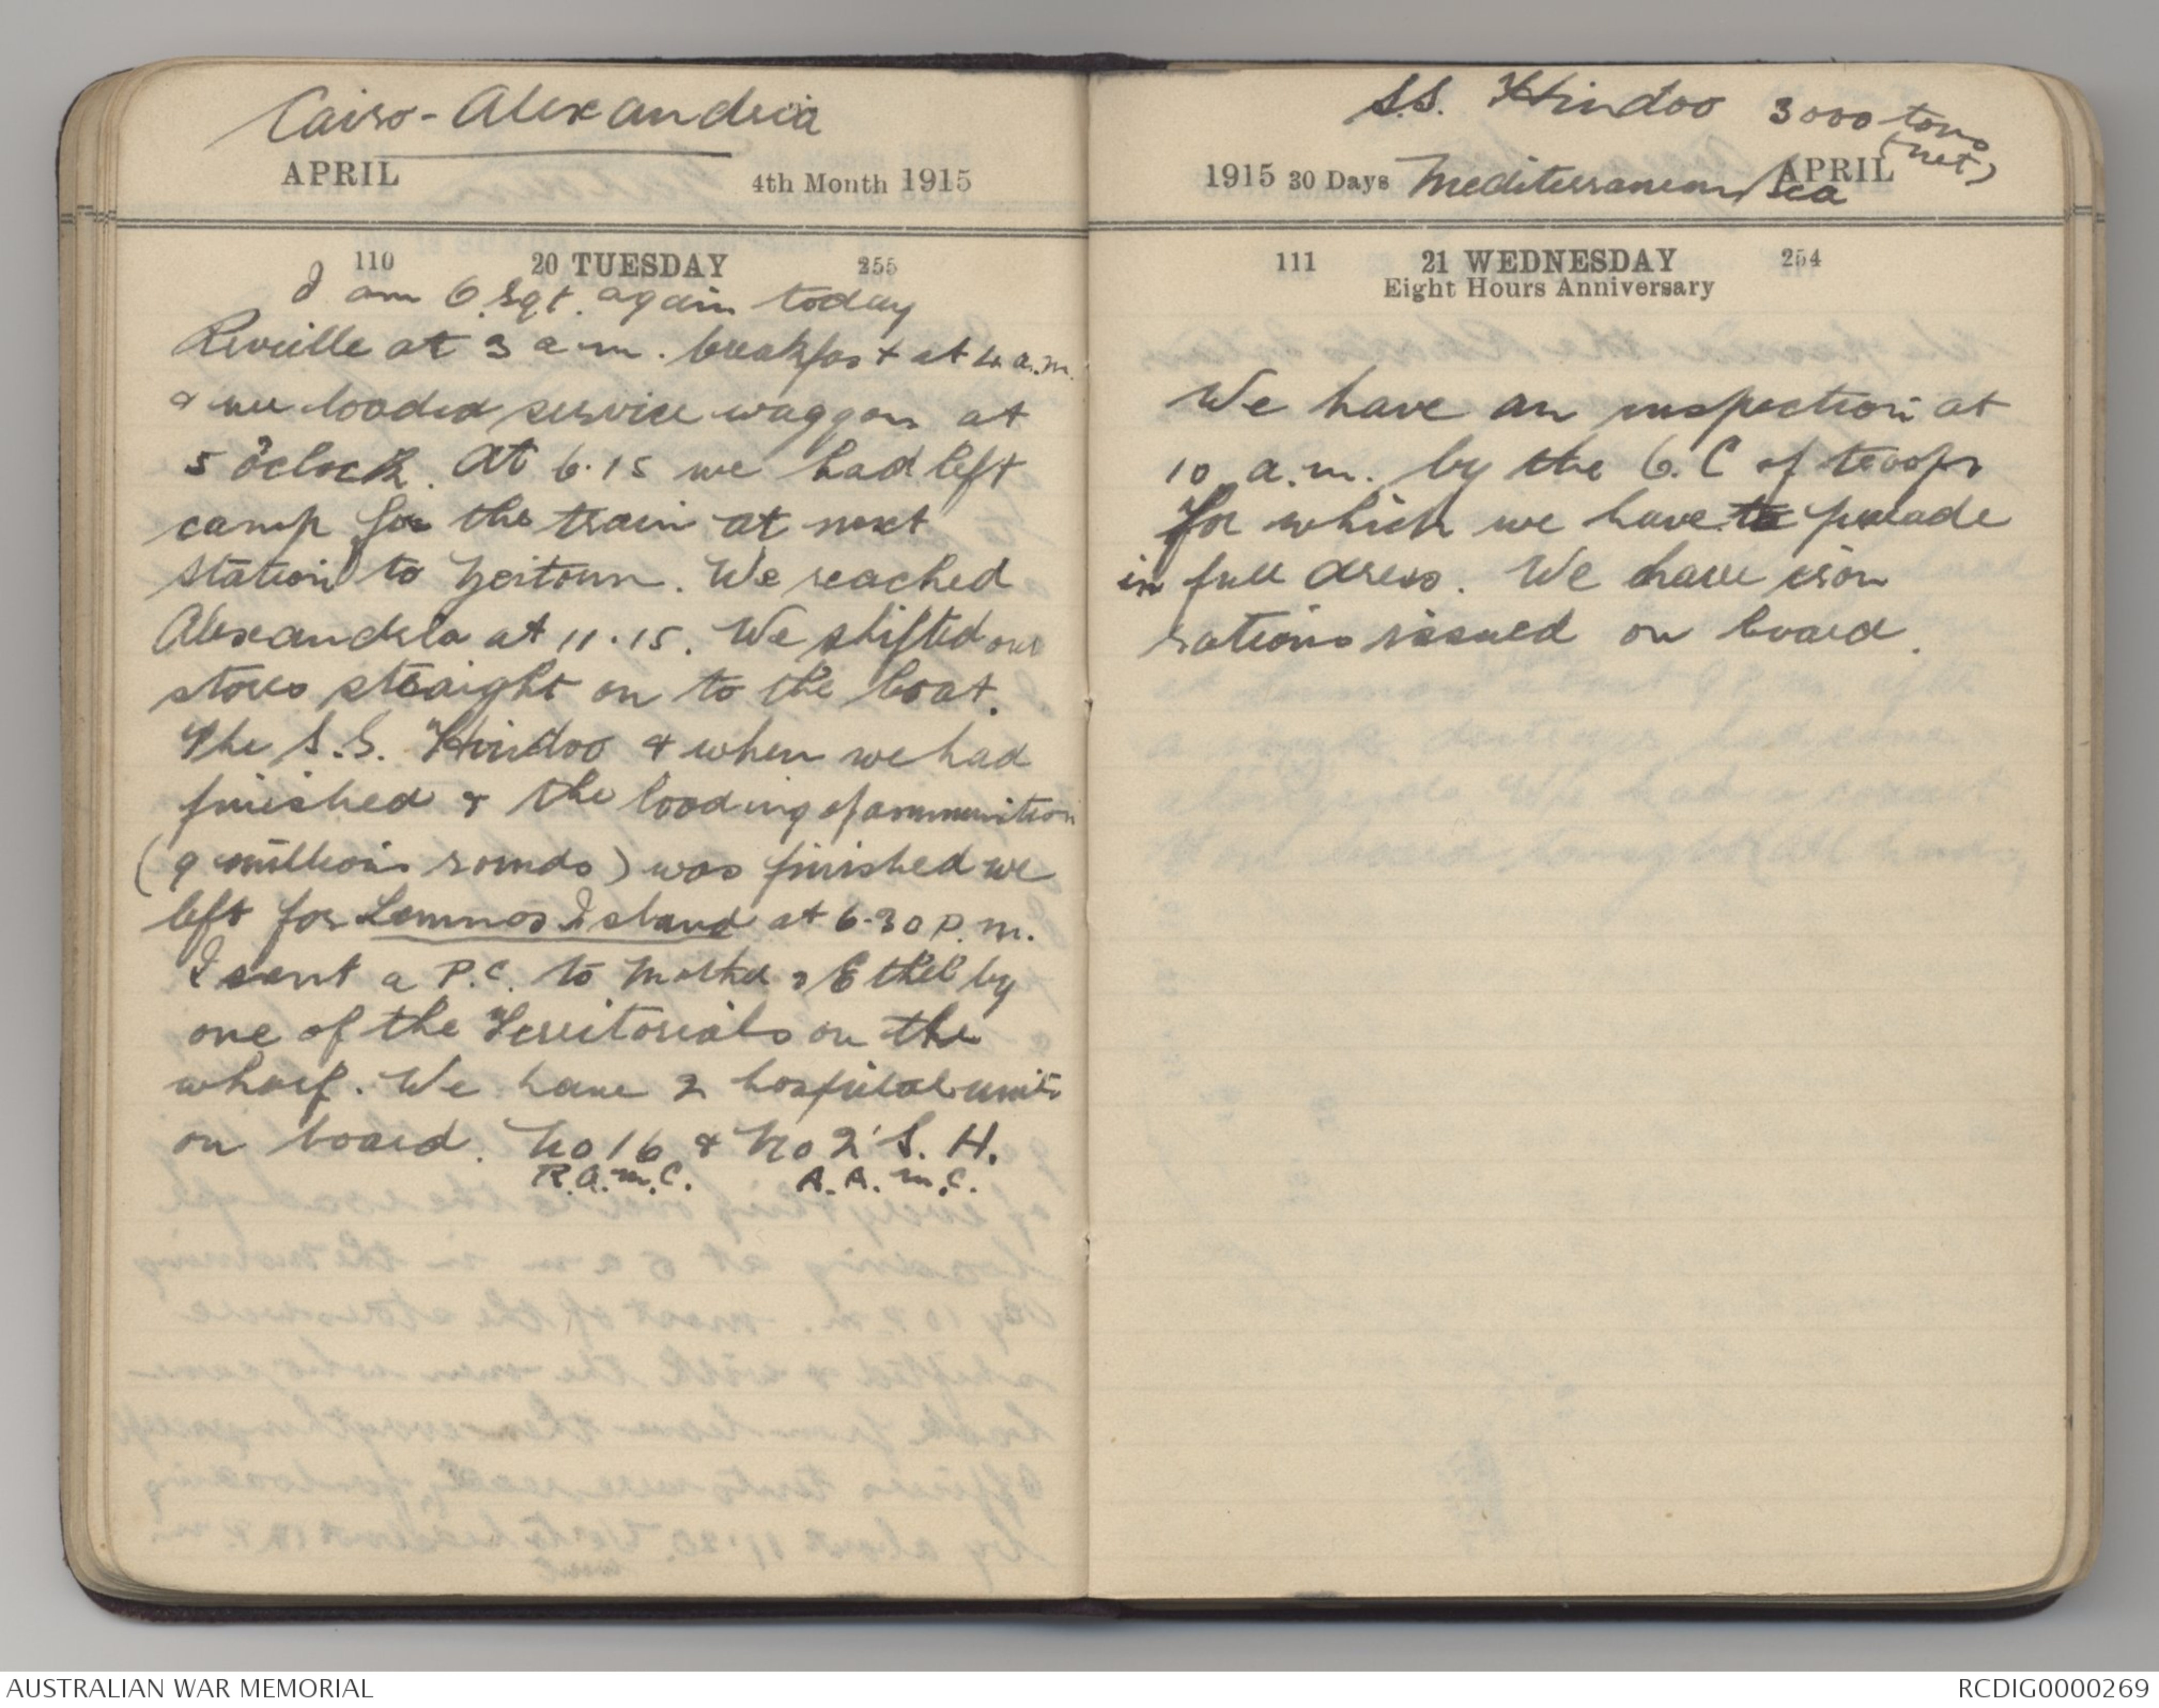 Cairo - Alexandria
APRIL 4th Month 1915
110 20 TUESDAY 255
I am O.Sgt. again today
Reveille at 3 a.m. breakfast at 4 a.m.
& we loaded service waggons at
5 o'clock. At 6.15 we had left
camp for the train at next
station to Zeitoun. We reached
Alexandria at 11.15. We shifted our
stores straight on to the boat.
The S.S. Hindoo & when we had
finished & the loading of ammunition
(9 millions rounds) was finished we
left for Lemnos Island at 6.30 P.m.
I sent a P.C. to Mother & Ethel by
one of the Territorials on the
wharf. We have 2 hospital units
on board. No 16 & No 2 S. H.
R.A.M.C. A.A.M.C.
S.S. Hindoo 3000 tons
(net)
1915 30 Days Mediterranean Sea APRIL
111 21 WEDNESDAY 254
Eight Hours Anniversary
We have an inspection at
10 a.m. by the O.C of troops
for which we have to parade
in full dress. We have iron
rations issued on board.
AUSTRALIAN WAR MEMORIAL RCDIG0000269